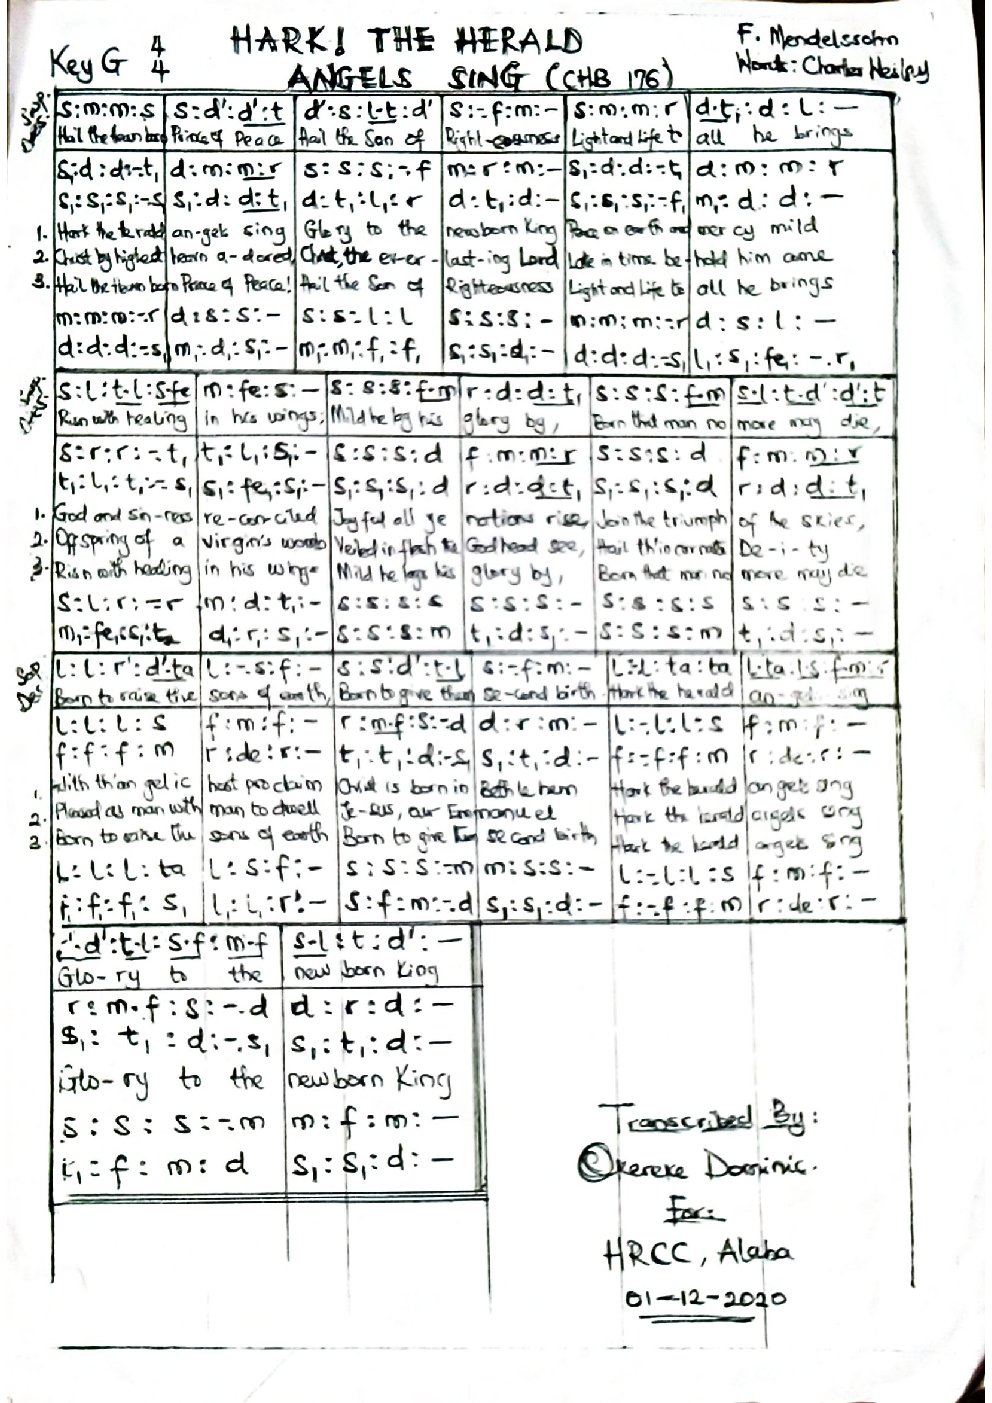 Key G 4/4
HARK! THE HERALD
ANGELS SING (CHB 176)
F. Mendelssohn
Words: Charles
s:m:m:s | s:d':d':t | d':s:l-t:d' | s:-f:m:- | s:m:m:r | d-t₁:d:l:—
Hail the heaven born Prince of Peace Hail the Son of Right-eousness Light and Life to all he brings
s₁:d:d:-t₁ | d:m:m:r | s:s:s:-f | m:r:m:- | s₁:d:d:-t₁ | d:m:m:r
s₁:s₁:s₁:-s | s₁:d:d:t₁ | d:t₁:l₁:r | d:t₁:d:- | s₁:s₁:s₁:-f₁ | m₁:d:d:—
1. Hark the herald an-gels sing Glory to the newborn King Peace on earth and mercy mild
2. Christ by highest heavn a-dored, Christ, the ever-last-ing Lord Late in time be-hold him come
3. Hail the Heaven born Prince of Peace! Hail the Son of Righteousness Light and Life to all he brings
m:m:m:-r | d:s:s:- | s:s:l:l | s:s:s:- | m:m:m:-r | d:s:l:—
d:d:d:-s₁ | m₁:d₁:s₁:- | m₁:m₁:f₁:f₁ | s₁:s₁:d₁:- | d:d:d:-s₁ | l₁:s₁:fe₁:-.r₁
s:l:t-l:s-fe | m:fe:s:— | s:s:s:f-m | r:d:d:t₁ | s:s:s:f-m | s-l:t-d':d':t
Risn with healing in his wings, Mild he lay his glory by, Born that man no more may die,
s:r:r:-t₁ | t₁:l₁:s₁:- | s:s:s:d | f:m:m:r | s:s:s:d | f:m:m:r
t₁:l₁:t₁:-s₁ | s₁:fe₁:s₁:- | s₁:s₁:s₁:d | r:d:d:t₁ | s₁:s₁:s₁:d | r:d:d:t₁
1. God and sin-ners re-con-ciled Joyful all ye nations rise, Join the triumph of the skies,
2. Offspring of a virgin's womb Veiled in flesh the Godhead see, Hail th'incarnate De-i-ty
3. Risn with healing in his wings Mild he lays his glory by, Born that man no more may die
s:l:r:-r | m:d:t₁:- | s:s:s:s | s:s:s:- | s:s:s:s | s:s:s:-
m₁:fe₁:s₁:t₂ | d₁:r₁:s₁:- | s:s:s:m | t₁:d:s₁:- | s:s:s:m | t₁:d:s₁:-
l:l:r':d'-ta | l:-s:f:- | s:s:d':t-l | s:-f:m:- | l:-l:ta:ta | l-ta:l-s:f-m:r
Born to raise the sons of earth, Born to give them se-cond birth Hark the herald an-gels sing
l:l:l:s | f:m:f:- | r:m-f:s:-d | d:r:m:- | l:-l:l:s | f:m:f:—
f:f:f:m | r:de:r:- | t₁:t₁:d:-s₁ | s₁:t₁:d:- | f:-f:f:m | r:de:r:—
1. With th'an gelic host proclaim Christ is born in Bethlehem Hark the herald angels sing
2. Pleased as man with man to dwell Je-sus, our Emmanuel Hark the herald angels sing
3. Born to raise the sons of earth Born to give them second birth Hark the herald angels sing
l:l:l:ta | l:s:f:- | s:s:s:-m | m:s:s:- | l:-l:l:s | f:m:f:—
f₁:f₁:f₁:s₁ | l₁:l₁:r':- | s:f:m:-d | s₁:s₁:d:- | f:-f:f:m | r:de:r:-
d':t-l:s-f:m-f | s-l:t:d':—
Glo-ry to the new born King
r:m-f:s:-.d | d:r:d:—
s₁:t₁:d:-.s₁ | s₁:t₁:d:—
Glo-ry to the newborn King
s:s:s:-m | m:f:m:—
t₁:f:m:d | s₁:s₁:d:—
Transcribed By:
Okereke Dominic.
For:
HRCC, Alaba
01-12-2020